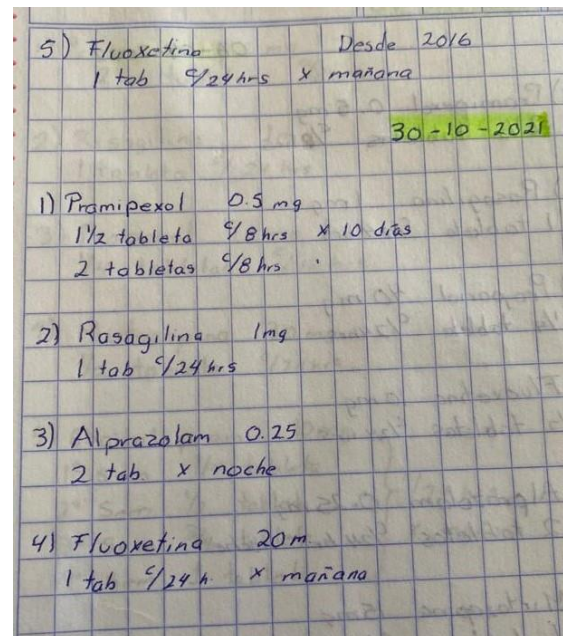 5) Fluoxetina Desde 2016
1 tab c/24hrs x mañana
30-10-2021
1) Pramipexol 0.5 mg
1 1/2 tableta c/8 hrs x 10 días
2 tabletas c/8 hrs.
2) Rasagilina 1mg
1 tab c/24 hrs
3) Alprazolam 0.25
2 tab. x noche
4) Fluoxetina 20m
1 tab c/24 h. x mañana